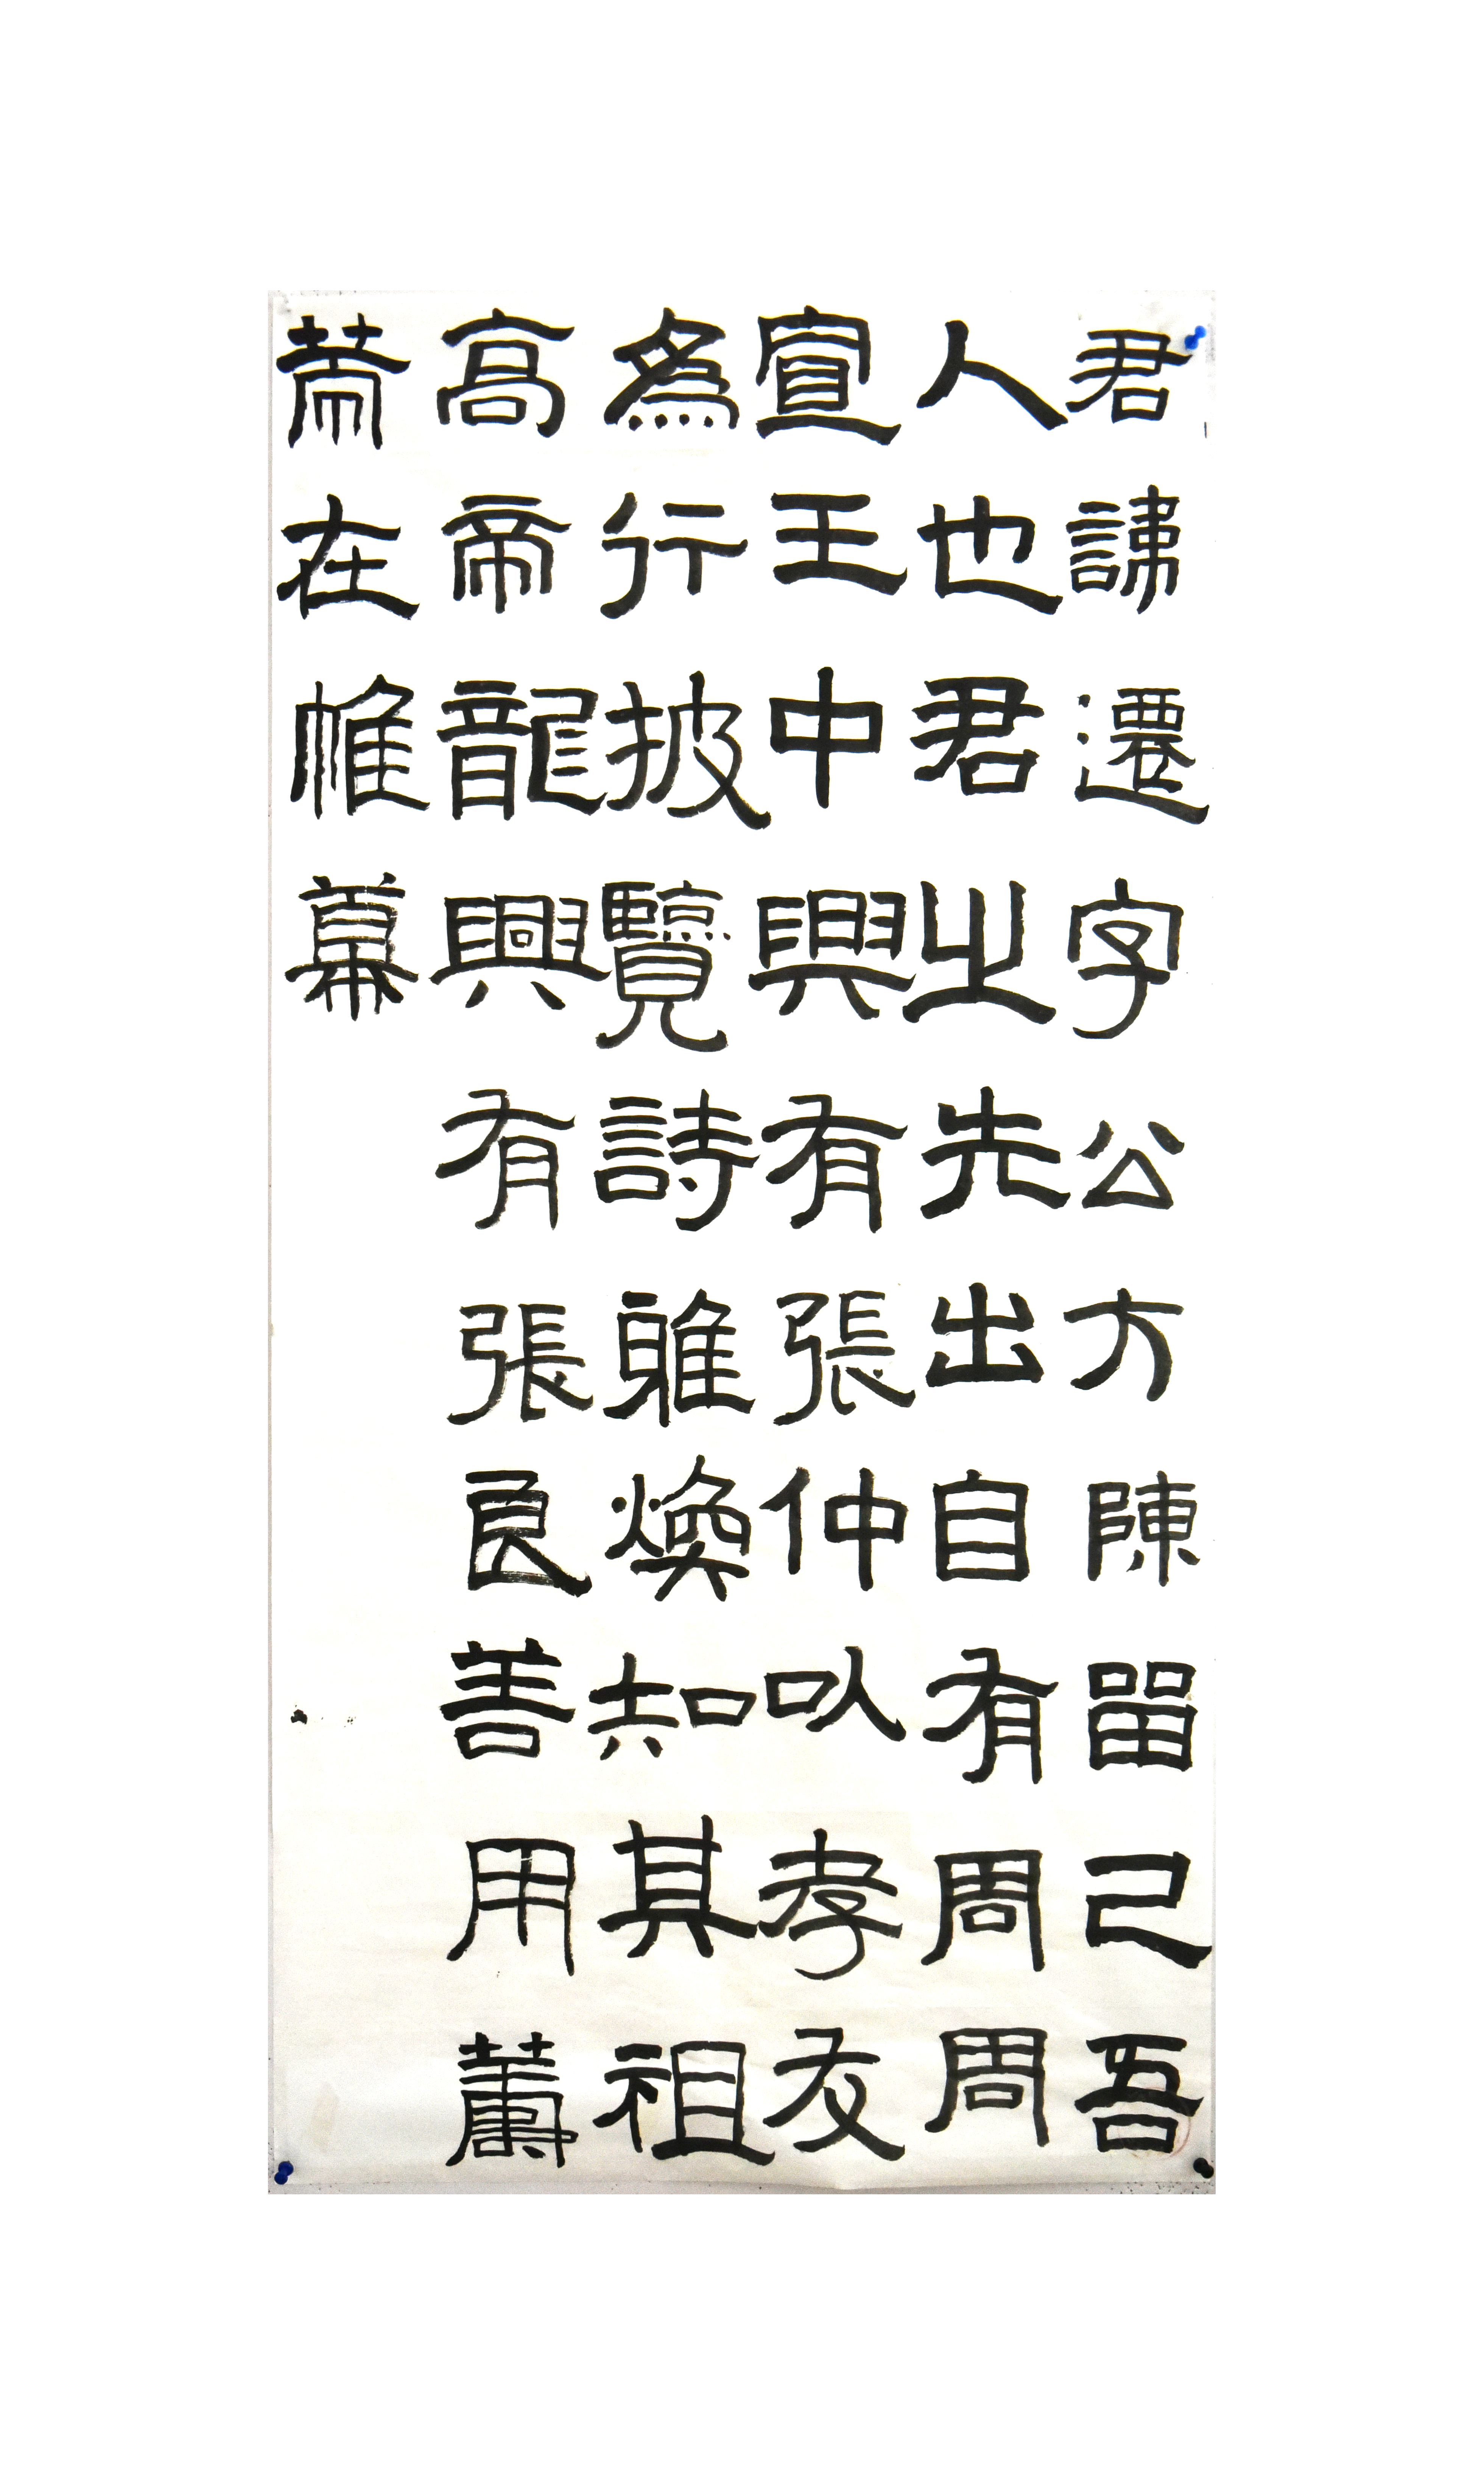 君諱遷字公方陳留己吾
人也君之先出自有周周
宣王中興有張仲以孝友
為行披覽詩雅煥知其祖
高帝龍興有張良善用籌
策在帷幕